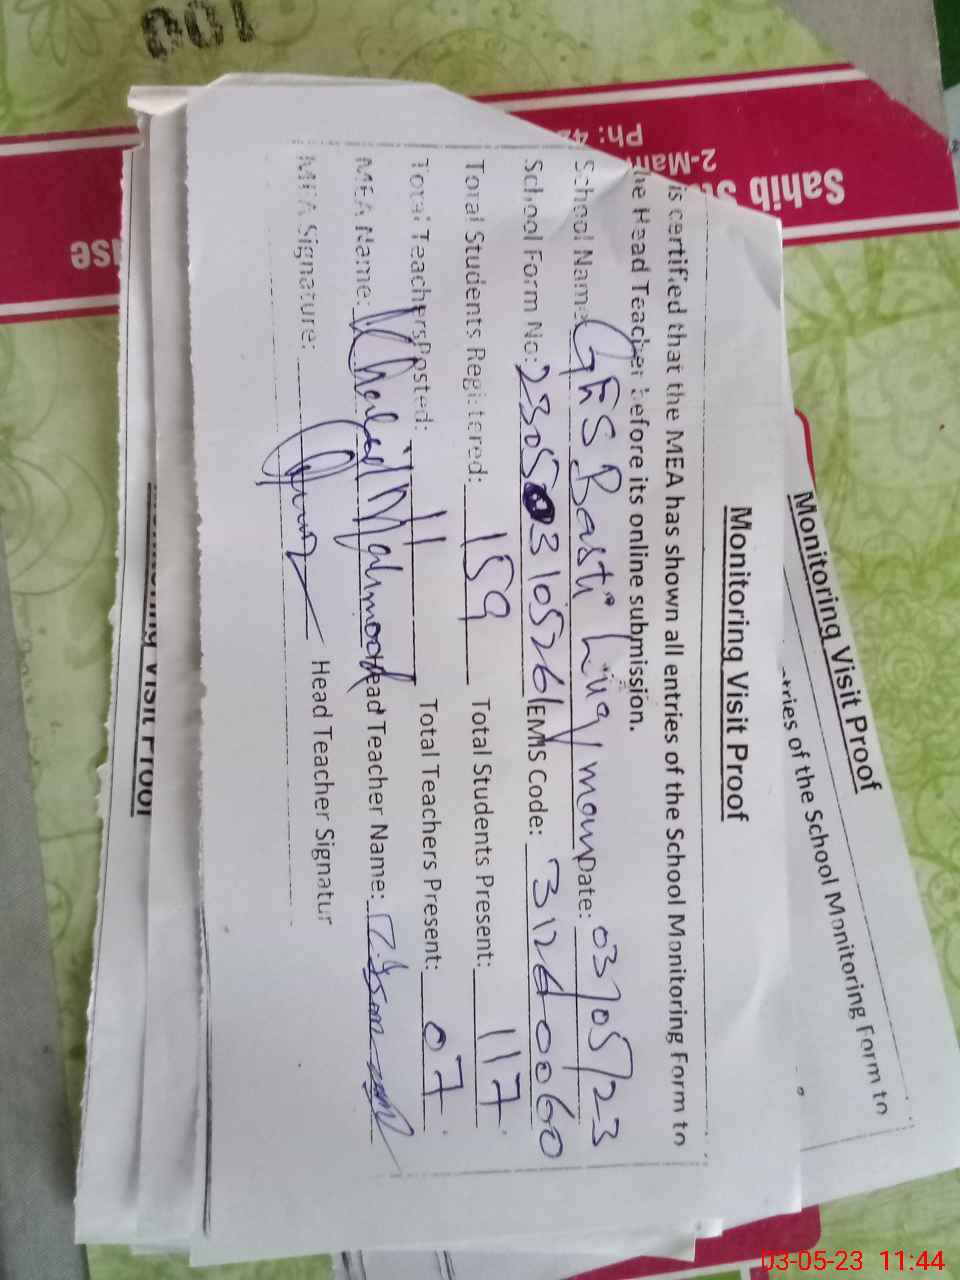 Monitoring Visit Proof
is certified that the MEA has shown all entries of the School Monitoring Form to
he Head Teacher before its online submission.
School Name: GES Basti Date: 03/05/23
School Form No: 2305 3105261 EMIS Code: 31240060
Total Students Registered: 159 Total Students Present: 117
Total Teachers Posted: 11 Total Teachers Present: 07
MEA Name: Khalid Mahmood Head Teacher Name:
MEA Signature: Head Teacher Signatur
Monitoring Visit Proof
tries of the School Monitoring Form to
Monitoring Visit Proof
Sahib
2-Man
Ph: 42
use
100
03-05-23 11:44